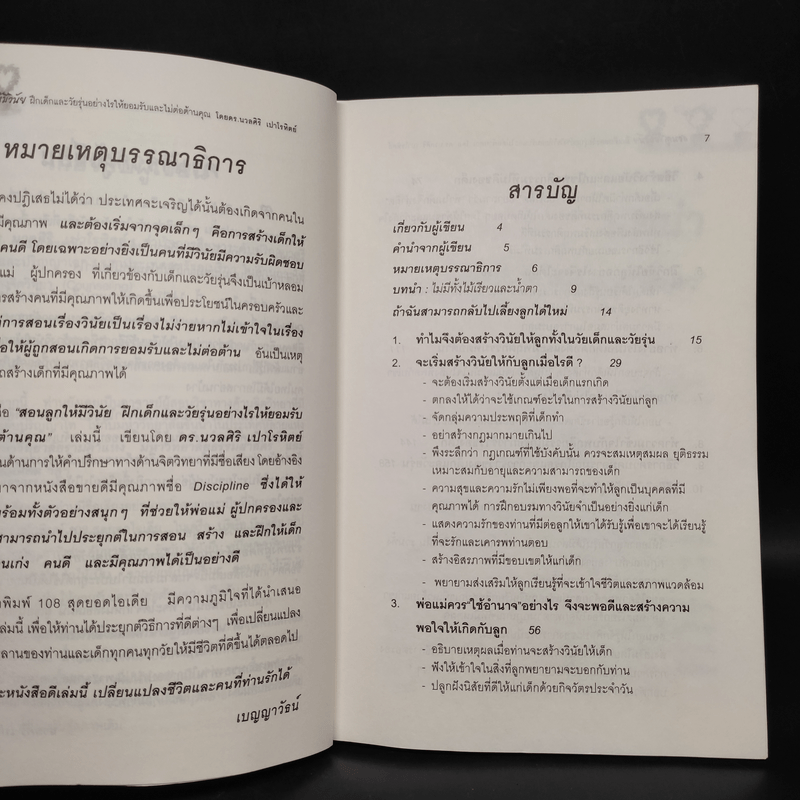 ฝึกเด็กและวัยรุ่นอย่างไรให้ยอมรับและไม่ต่อต้านคุณ โดยดร.นวลศิริ เปาโรหิตย์
หมายเหตุบรรณาธิการ
คงปฏิเสธไม่ได้ว่า ประเทศจะเจริญได้นั้นต้องเกิดจากคนใน
มีคุณภาพ และต้องเริ่มจากจุดเล็กๆ คือการสร้างเด็กให้
คนดี โดยเฉพาะอย่างยิ่งเป็นคนที่มีวินัยมีความรับผิดชอบ
แม่ ผู้ปกครอง ที่เกี่ยวข้องกับเด็กและวัยรุ่นจึงเป็นเบ้าหลอม
สร้างคนที่มีคุณภาพให้เกิดขึ้นเพื่อประโยชน์ในครอบครัวและ
การสอนเรื่องวินัยเป็นเรื่องไม่ง่ายหากไม่เข้าใจในเรื่อง
ให้ผู้ถูกสอนเกิดการยอมรับและไม่ต่อต้าน อันเป็นเหตุ
สร้างเด็กที่มีคุณภาพได้
"สอนลูกให้มีวินัย ฝึกเด็กและวัยรุ่นอย่างไรให้ยอมรับ
ต้านคุณ" เล่มนี้ เขียนโดย ดร.นวลศิริ เปาโรหิตย์
ด้านการให้คำปรึกษาทางด้านจิตวิทยาที่มีชื่อเสียง โดยอ้างอิง
จากหนังสือขายดีมีคุณภาพชื่อ Discipline ซึ่งได้ให้
พร้อมทั้งตัวอย่างสนุกๆ ที่ช่วยให้พ่อแม่ ผู้ปกครองและ
สามารถนำไปประยุกต์ในการสอน สร้าง และฝึกให้เด็ก
คนเก่ง คนดี และมีคุณภาพได้เป็นอย่างดี
พิมพ์ 108 สุดยอดไอเดีย มีความภูมิใจที่ได้นำเสนอ
เล่มนี้ เพื่อให้ท่านได้ประยุกต์วิธีการที่ดีต่างๆ เพื่อเปลี่ยนแปลง
ลานของท่านและเด็กทุกคนทุกวัยให้มีชีวิตที่ดีขึ้นได้ตลอดไป
หนังสือดีเล่มนี้ เปลี่ยนแปลงชีวิตและคนที่ท่านรักได้
เบญญาวัธน์
7
สารบัญ
เกี่ยวกับผู้เขียน 4
คำนำจากผู้เขียน 5
หมายเหตุบรรณาธิการ 6
บทนำ : ไม่มีทั้งไม้เรียวและน้ำตา 9
ถ้าฉันสามารถกลับไปเลี้ยงลูกได้ใหม่ 14
1. ทำไมจึงต้องสร้างวินัยให้ลูกทั้งในวัยเด็กและวัยรุ่น 15
2. จะเริ่มสร้างวินัยให้กับลูกเมื่อไรดี ? 29
- จะต้องเริ่มสร้างวินัยตั้งแต่เมื่อเด็กแรกเกิด
- ตกลงให้ได้ว่าจะใช้เกณฑ์อะไรในการสร้างวินัยแก่ลูก
- จัดกลุ่มความประพฤติที่เด็กทำ
- อย่าสร้างกฎมากมายเกินไป
- พึงระลึกว่า กฎเกณฑ์ที่ใช้บังคับนั้น ควรจะสมเหตุสมผล ยุติธรรม
เหมาะสมกับอายุและความสามารถของเด็ก
- ความสุขและความรักไม่เพียงพอที่จะทำให้ลูกเป็นบุคคลที่มี
คุณภาพได้ การฝึกอบรมทางวินัยจำเป็นอย่างยิ่งแก่เด็ก
- แสดงความรักของท่านที่มีต่อลูกให้เขาได้รับรู้เพื่อเขาจะได้เรียนรู้
ที่จะรักและเคารพท่านตอบ
- สร้างอิสรภาพที่มีขอบเขตให้แก่เด็ก
- พยายามส่งเสริมให้ลูกเรียนรู้ที่จะเข้าใจชีวิตและสภาพแวดล้อม
3. พ่อแม่ควร"ใช้อำนาจ"อย่างไร จึงจะพอดีและสร้างความ
พอใจให้เกิดกับลูก 56
- อธิบายเหตุผลเมื่อท่านจะสร้างวินัยให้เด็ก
- ฟังให้เข้าใจในสิ่งที่ลูกพยายามจะบอกกับท่าน
- ปลูกฝังนิสัยที่ดีให้แก่เด็กด้วยกิจวัตรประจำวัน